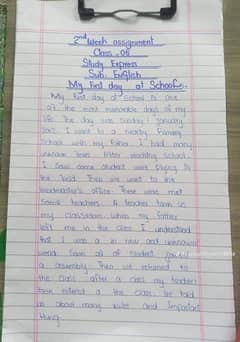 2nd Week assignment
Class-06
Study Express
Sub: English
My First day at School.
My first day at School is one
of the most memorable days of my
life. The day was Sunday 1 January
I went to a nearby Primary
School with my father. I had many
unknown fears. After reaching school,
I saw some student were playing in
the field. Then we went to the
headmaster's office. There were met
Some teachers. A teacher took us
my classroom. When my father
left me in the class I understand
that I was a in new and unknown
world. Soon all of student
a assembly. Then we returned to
the class. after a
took entered a the class. he told
us about many rules and important
thing.